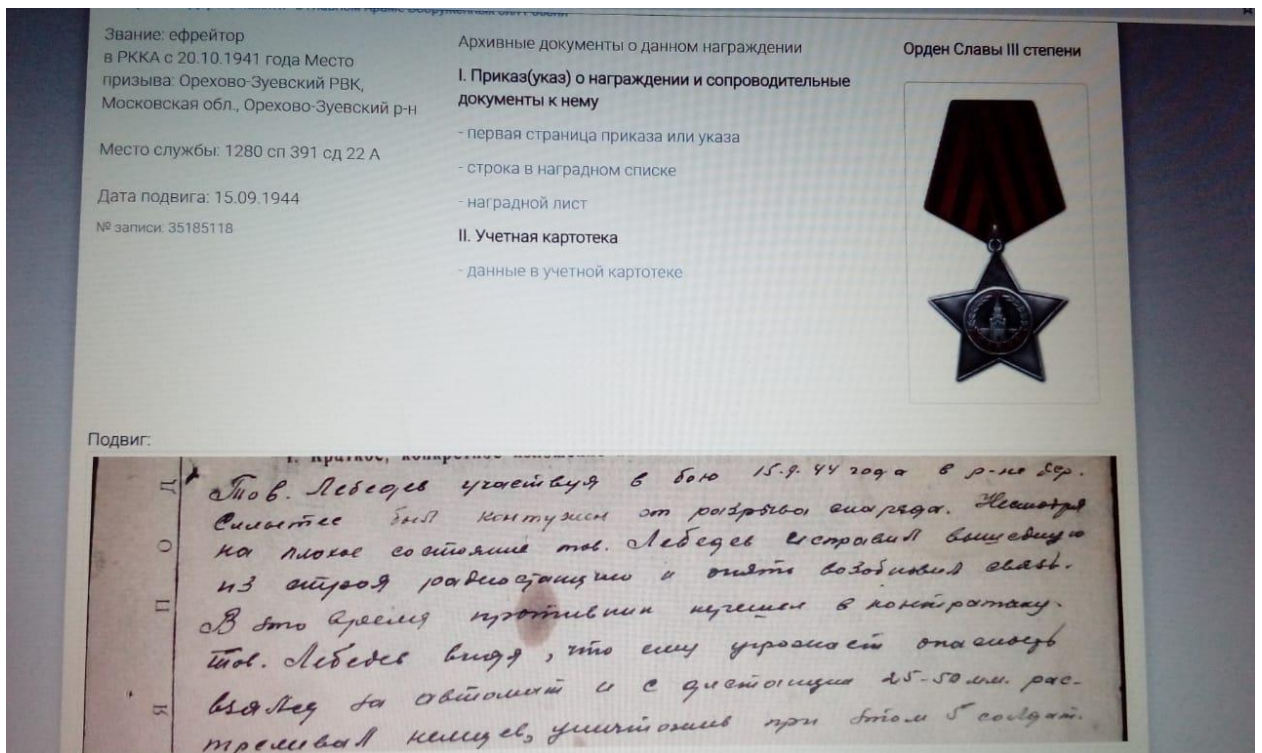 Звание: ефрейтор
в РККА с 20.10.1941 года Место
призыва: Орехово-Зуевский РВК,
Московская обл., Орехово-Зуевский р-н
Место службы: 1280 сп 391 сд 22 А
Дата подвига: 15.09.1944
№ записи: 35185118
Архивные документы о данном награждении
I. Приказ(указ) о награждении и сопроводительные
документы к нему
- первая страница приказа или указа
- строка в наградном списке
- наградной лист
II. Учетная картотека
- данные в учетной картотеке
Орден Славы III степени
Подвиг:
I. Краткое, конкретное
Тов. Лебедев участвуя в бою 15.9.44 года в р-не дер.
был контужен от разрыва снаряда. Несмотря
на плохое состояние тов. Лебедев исправил вышедшую
из строя радиостанцию и опять возобновил связь.
В это время противник перешел в контратаку.
Тов. Лебедев видя, что ему угрожает опасность
взялся за автомат и с дистанции 25-50 мт. рас-
треливал немцев, уничтожив при этом 5 солдат.